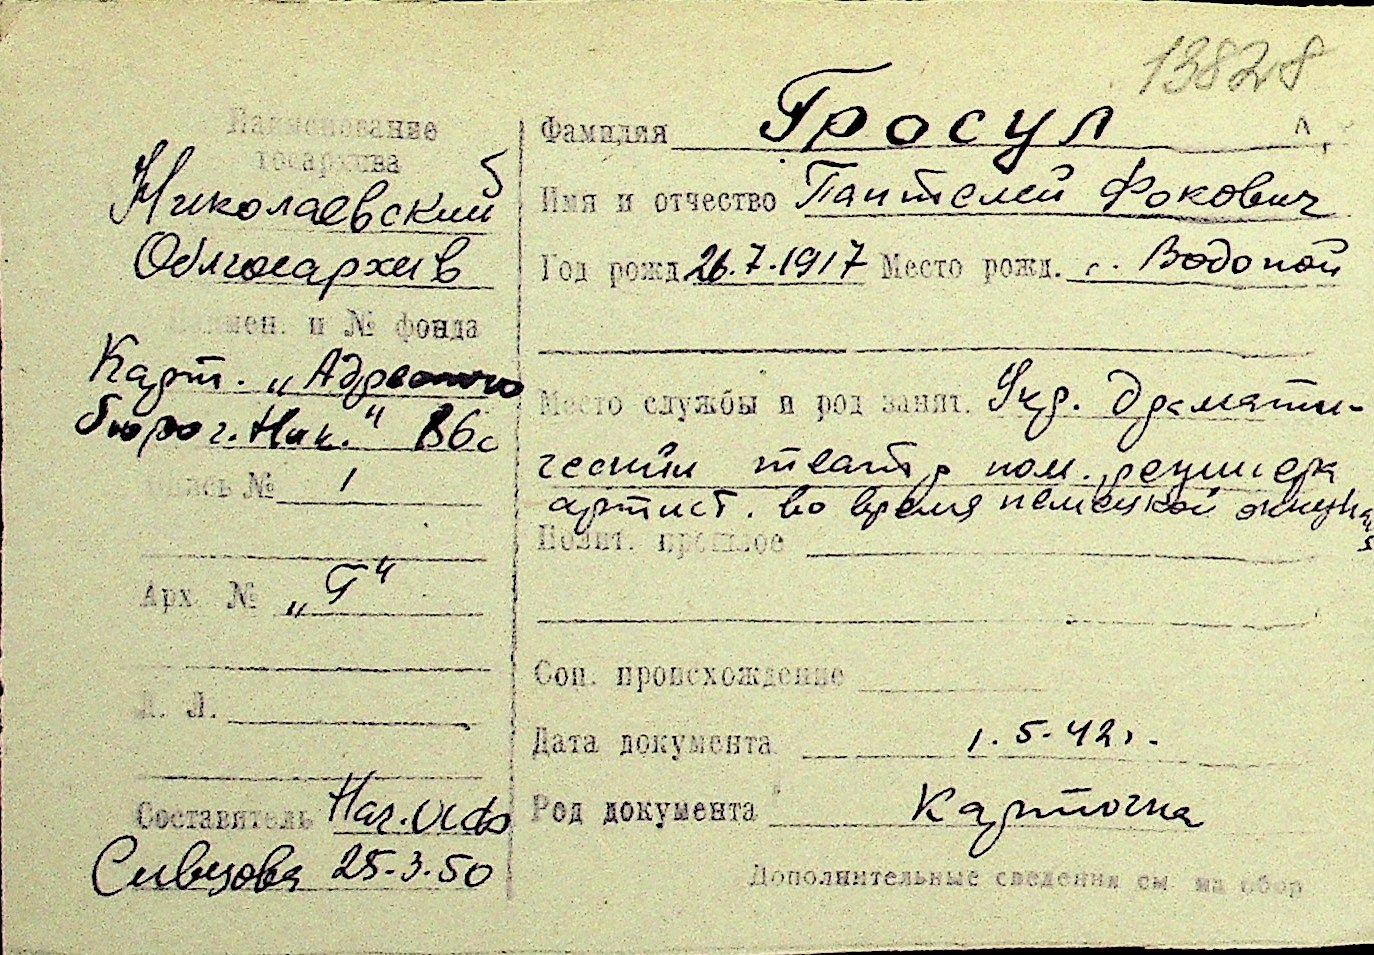 13828
Наименование
госархива
Николаевский
Облгосархив
Наимен. и № фонда
Карт. „Адресного
бюро г. Ник.“ 86с
Опись № 1
Арх. № „Г“
Л. Л.
Составитель Нач.
Сивцова 25.3.50
Фамилия Гросул
Имя и отчество Пантелей Фокович
Год рожд. 26.7.1917 Место рожд. с. Водопой
Место службы и род занят. Укр. Драмати-
ческий театр пом. режисера
артист. во время немецкой оккупация
Полит. прошлое
Соц. происхождение
Дата документа 1.5.42г.
Род документа Карточка
Дополнительные сведения см на обор